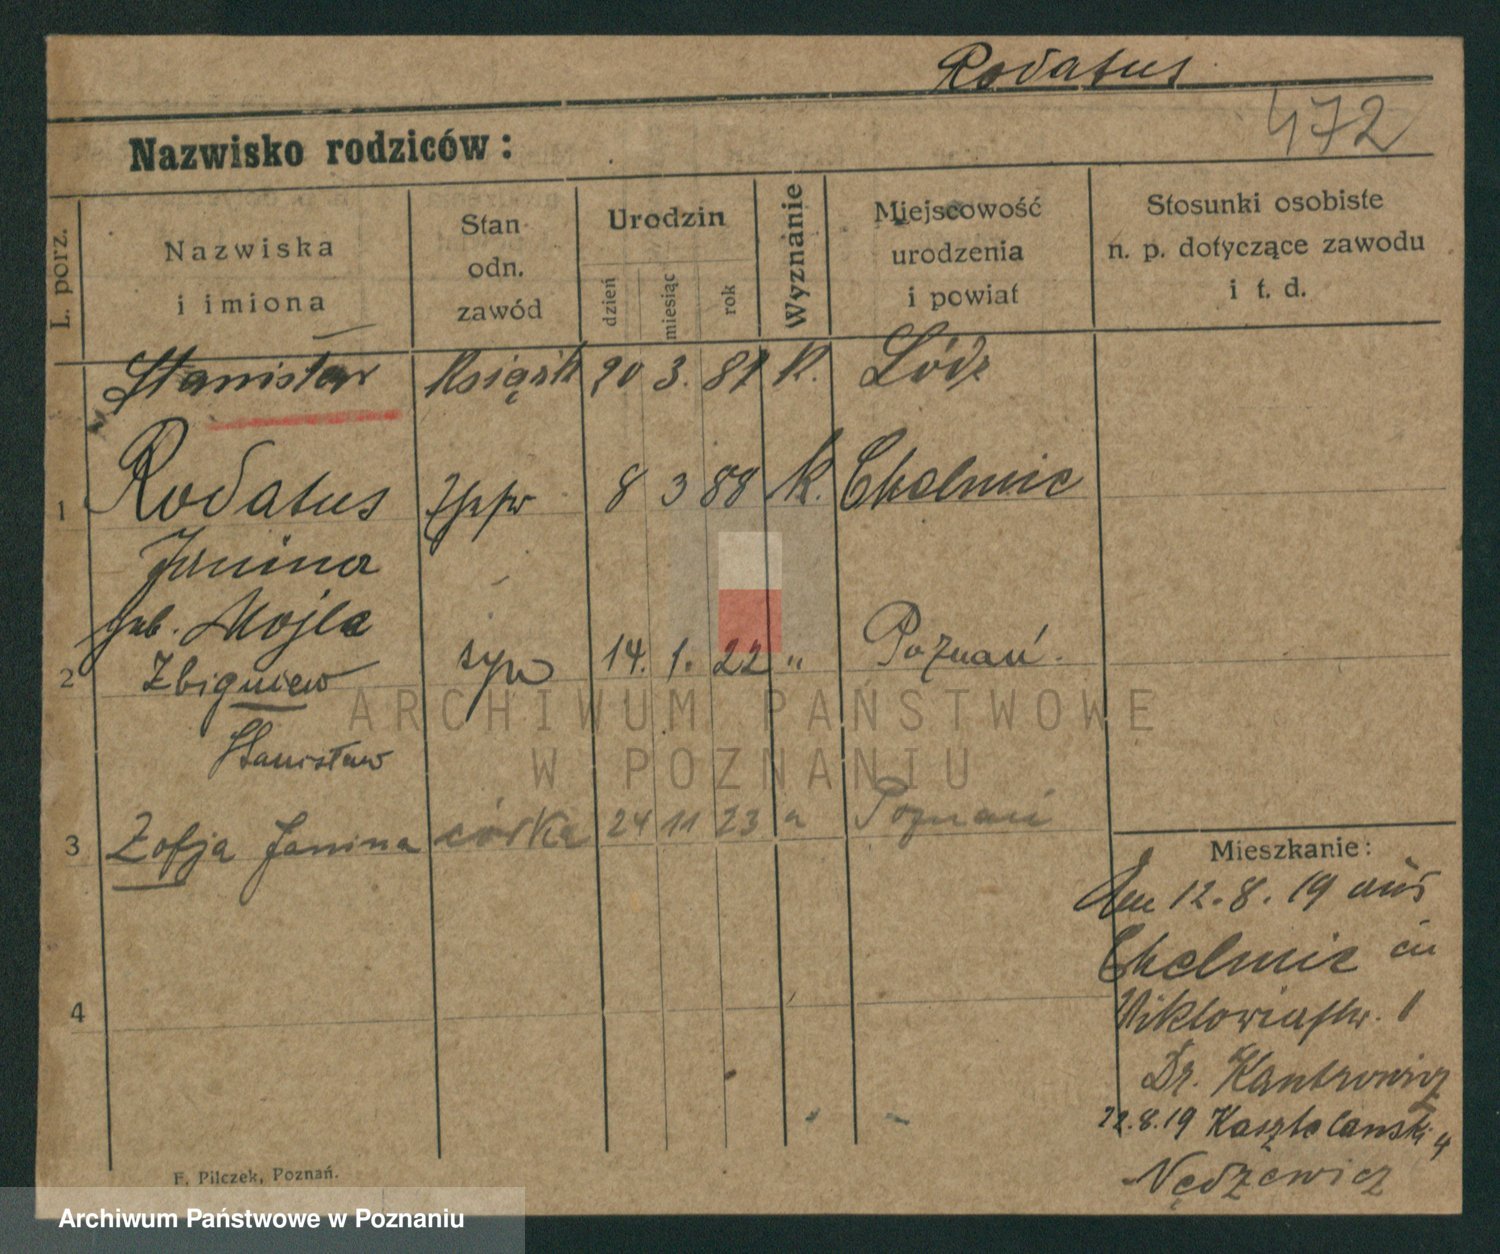 Rodatus
472
Nazwisko rodziców:
L. porz.
Nazwiska
i imiona
Stan
odn.
zawód
Urodzin
dzień
miesiąc
rok
Wyznanie
Miejscowość
urodzenia
i powiat
Stosunki osobiste
n. p. dotyczące zawodu
i t. d.
Stanisław 20 3. 81 k. Łódź
1 Rodatus 8 3 88 k. Chelmce
Janina
2 Zbigniew syn 14. 1. 22 " Poznań.
Stanisław
3 Zofja Janina córka 24 11 23 " Poznań
4
Mieszkanie:
12.8.19 aus
Chelmce in
1
Dr. Kantrowicz
22.8.19 Kasztelańska 4
Nędzewicz
F. Pilczek, Poznań.
ARCHIWUM PAŃSTWOWE
W POZNANIU
Archiwum Państwowe w Poznaniu